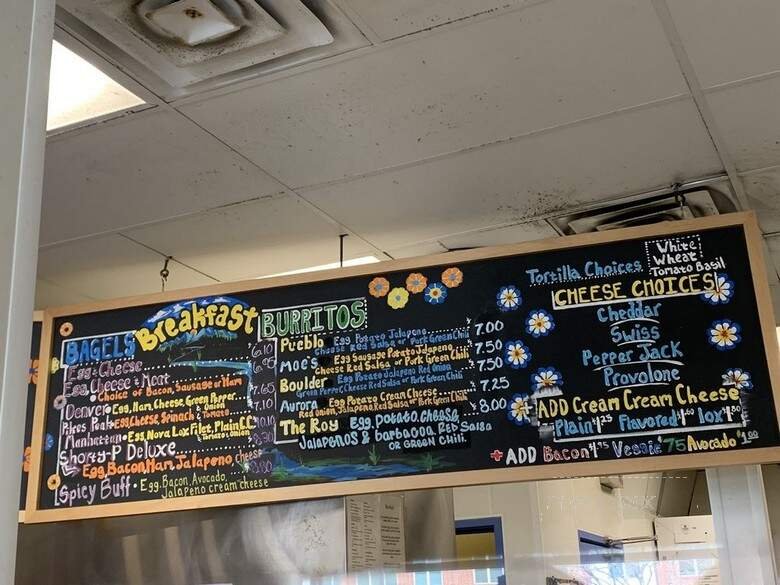 Breakfast
BAGELS
Egg-Cheese 6.10
Egg, Cheese & Meat 6.95
Choice of Bacon, Sausage or Ham
Denver-Egg, Ham, Cheese, Green Pepper 7.65
& Onion
Pikes Peak-Egg, Cheese, Spinach & Tomato 7.10
Manhattan-Egg, Nova Lox Filet, Plain CC
Tomato & Onion
Shorty-P Deluxe
Egg Bacon Ham Jalapeno cheese
Spicy Buff • Egg, Bacon, Avocado,
Jalapeno cream cheese
BURRITOS
Pueblo Egg Potato Jalapeno 7.00
Cheese Red Salsa or Pork Green Chili
Moe's Egg Sausage Potato Jalapeno 7.50
Cheese Red Salsa or Pork Green Chili
Boulder Egg Potato Jalapeno Red Onion 7.50
Green Pepper Cheese Red Salsa or Pork Green Chili
Aurora Egg Potato Cream Cheese 7.25
Red Onion, Jalapeno Red Salsa or Pork Green Chili
The Roy Egg, potato, cheese, 8.00
Jalapenos & barbacoa Red Salsa
OR GREEN Chili
Tortilla Choices
White
Wheat
Tomato Basil
CHEESE CHOICES
Cheddar
Swiss
Pepper Jack
Provolone
ADD Cream Cream Cheese
Plain Flavored lox
+ ADD Bacon Veggie 75 Avocado $1.00